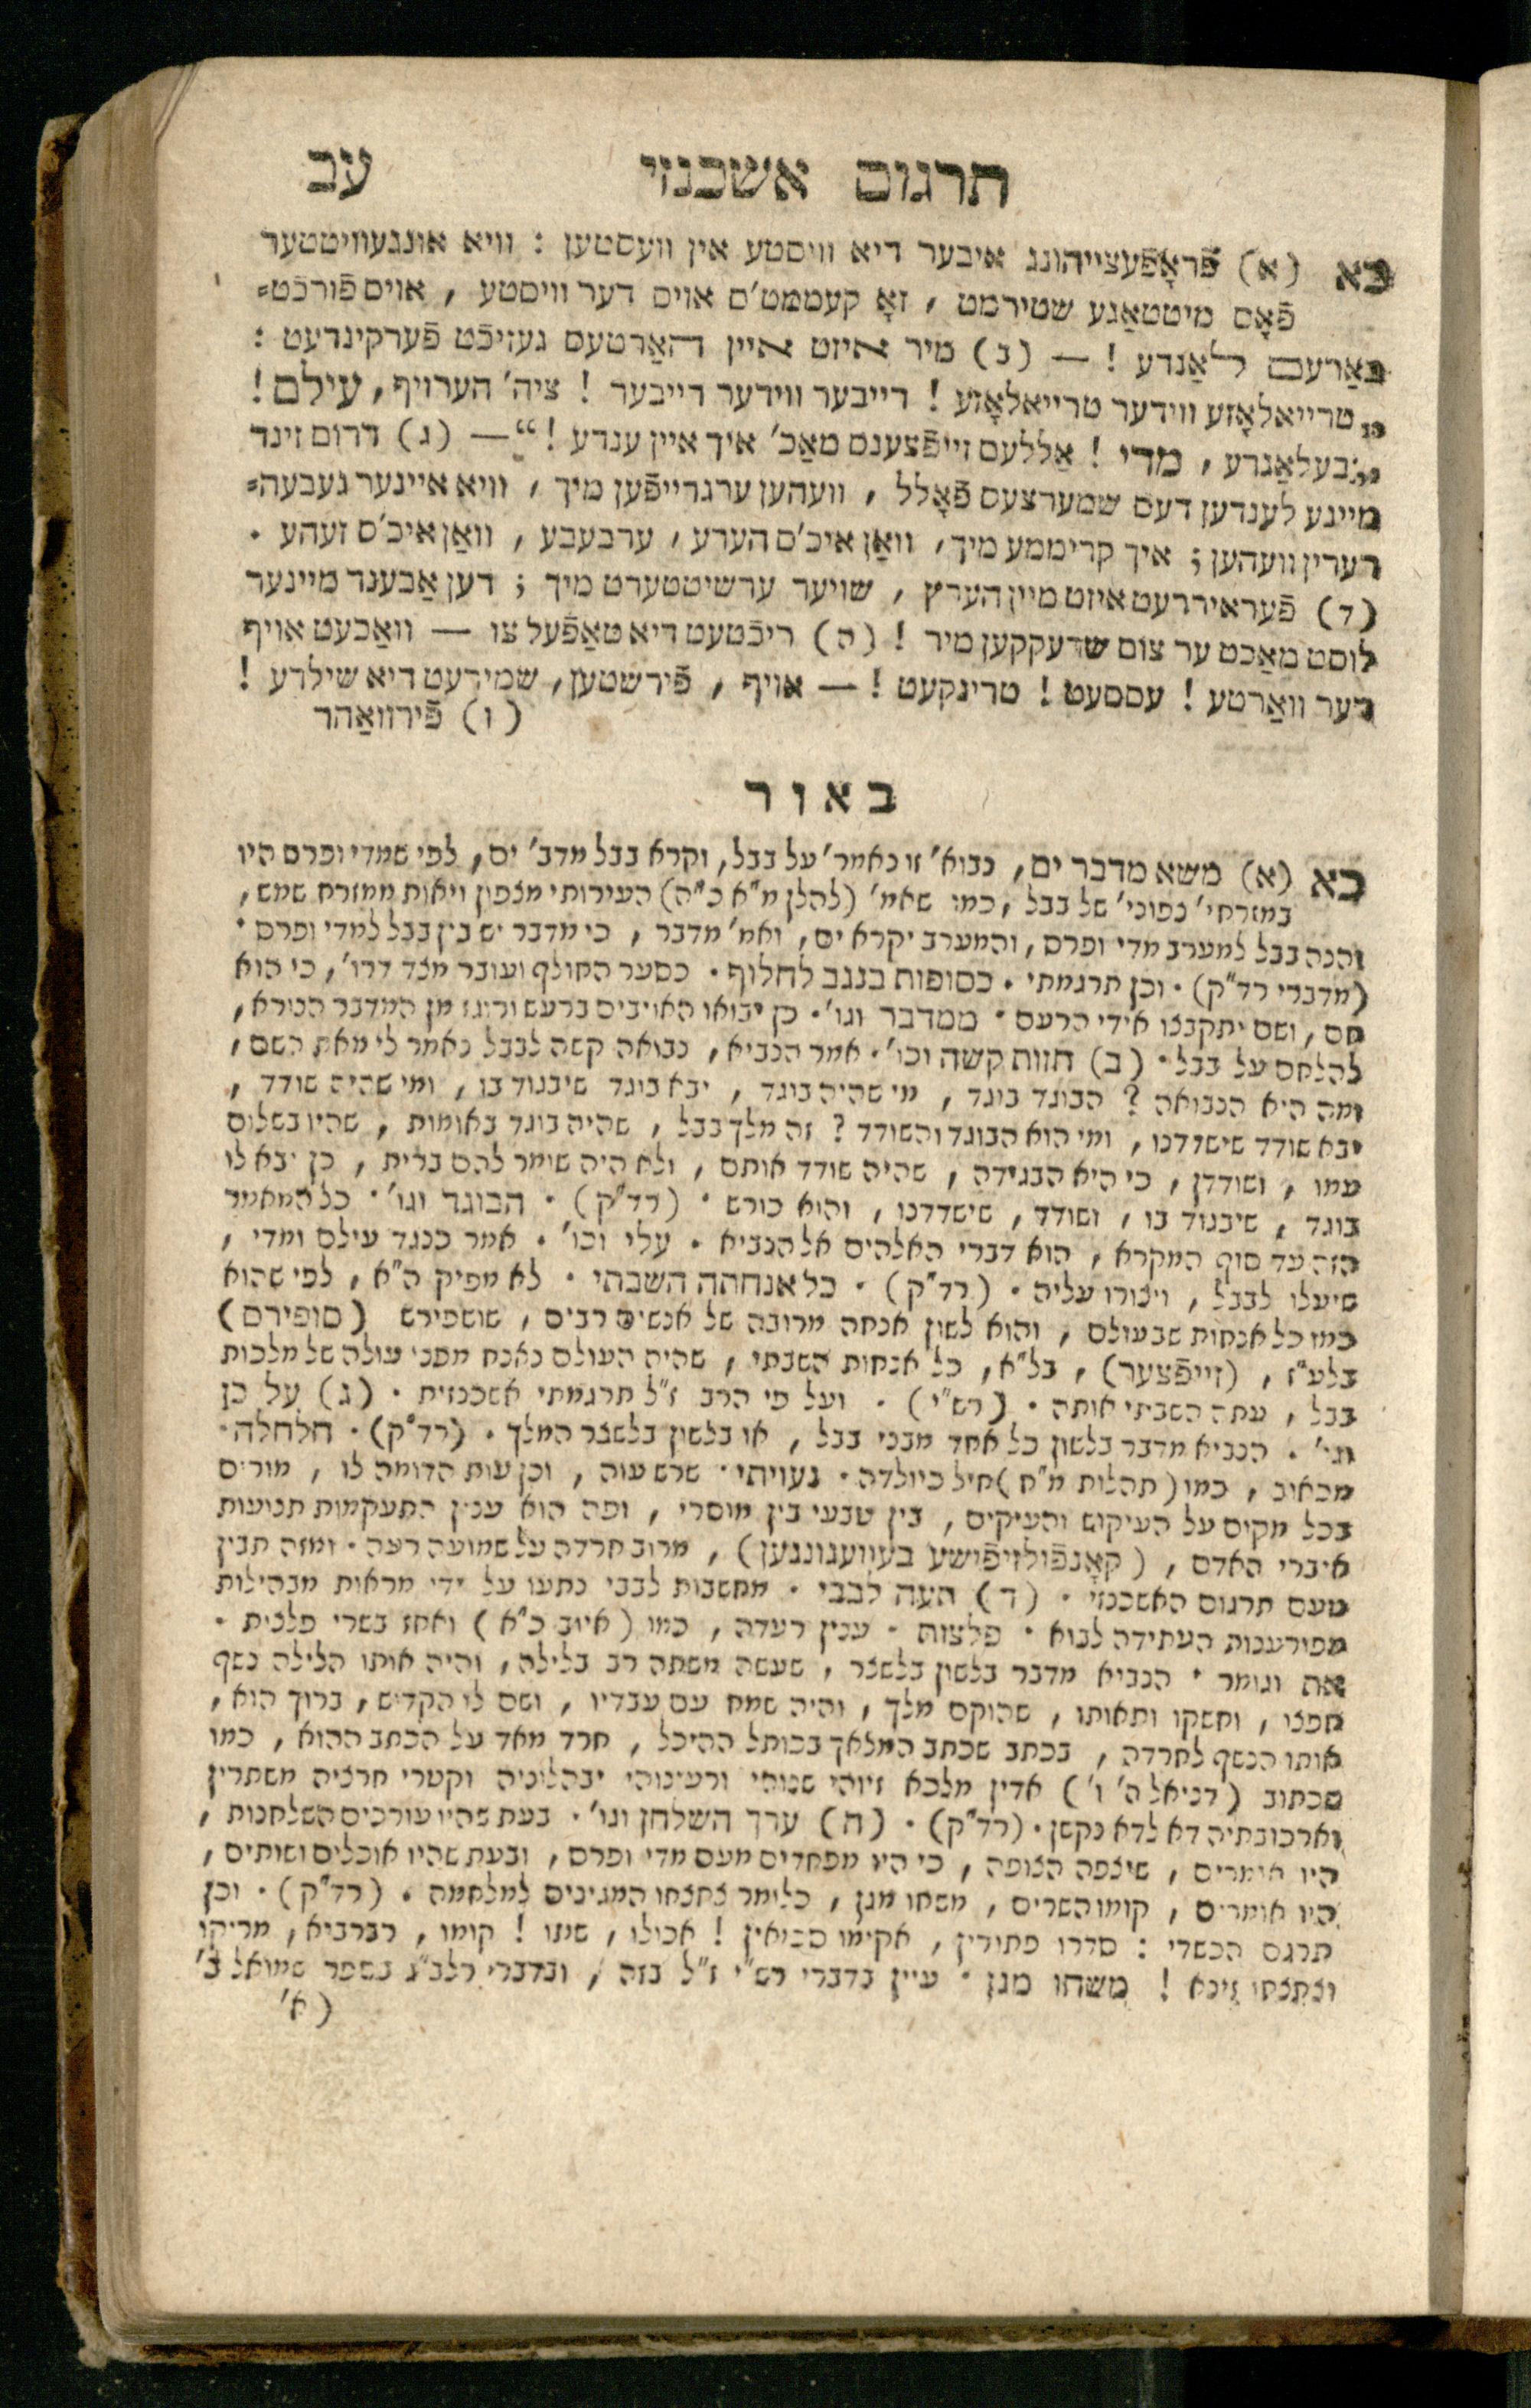 תרגום אשכנזי עב
כא (א) פֿראָפֿעצייהונג איבער דיא וויסטע אין וועסטען : וויא אונגעוויטטער
פֿאָם מיטטאַגע שטירמט , זאָ קעממט'ס אויס דער וויסטע , אויס פֿורכֿט=
באַרעם לאַנדע ! — (ב) מיר איזט איין האַרטעס געזיכֿט פֿערקינדעט :
„טרייאלאָזע ווידער טרייאלאָזע ! רייבער ווידער רייבער ! ציה' הערויף, עילם !
„בעלאַגרע , מדי ! אַללעס זייפֿצענס מאַכ' איך איין ענדע !“ — (ג) דרום זינד
מיינע לענדען דעס שמערצעס פֿאָלל , וועהען ערגרייפֿען מיך , וויא איינער געבעה=
רערין וועהען ; איך קריממע מיך, וואַן איכ'ס הערע , ערבעבע , וואַן איכ'ס זעהע .
(ד) פֿעראיררעט איזט מיין הערץ , שויער ערשיטטערט מיך ; דען אַבענד מיינער
לוסט מאַכט ער צום שרעקקען מיר ! (ה) ריכֿטעט דיא טאַפֿעל צו — וואַכעט אויף
דער וואַרטע ! עססעט ! טרינקעט ! — אויף , פֿירשטען, שמירעט דיא שילדע !
(ו) פֿירוואַהר
באור
כא (א) משא מדבר ים, נבוא' זו נאמר' על בבל, וקרא בבל מדב' ים, לפי שמדי ופרס היו
במזרחי' צפוני' של בבל , כמו שאמ' (להלן מ"א כ"ה) העירותי מצפון ויאות ממזרח שמש,
והנה בבל למערב מדי ופרס, והמערב יקרא ים, ואמ' מדבר , כי מדבר יש בין בבל למדי ופרס .
(מדברי רד"ק) . וכן תרגמתי . כסופות בנגב לחלוף . כסער החולף ועובר מצד דרו', כי הוא
חם, ושם יתקבצו אידי הרעם . ממדבר וגו' . כן יבואו האויבים ברעש ורוגז מן המדבר הנורא,
להלחם על בבל . (ב) חזות קשה וכו' . אמר הנביא, נבואה קשה לבבל נאמר לי מאת השם,
ומה היא הנבואה ? הבוגד בוגד , מי שהיה בוגד , יבא בוגד שיבגוד בו, ומי שהיה שודד,
יבא שודד שישדדנו, ומי הוא הבוגד והשודד ? זה מלך בבל , שהיה בוגד באומות , שהיו בשלום
עמו , ושודדן , כי היא הבגידה , שהיה שודד אותם , ולא היה שומר להם ברית , כן יבא לו
בוגד , שיבגוד בו , ושודד , שישדדנו , והוא כורש . (רד"ק) . הבוגד וגו' . כל המאמר
הזה עד סוף המקרא , הוא דברי האלהים אל הנביא . עלי וכו' . אמר כנגד עילם ומדי ,
שיעלו לבבל , ויצורו עליה . (רד"ק) . כל אנחתה השבתי . לא מפיק ה"א , לפי שהוא
כמו כל אנחות שבעולם , והוא לשון אנחה מרובה של אנשים רבים , שושפירש (סופירם)
בלע"ז , (זייפֿצער) , בל"א, כל אנחות השבתי , שהיה העולם נאנח מפני עולה של מלכות
בבל , עתה השבתי אותה . (רש"י) . ועל פי הרב ז"ל תרגמתי אשכנזית . (ג) על כן
וגו' . הנביא מדבר בלשון כל אחד מבני בבל , או בלשון בלשצר המלך . (רד"ק) . חלחלה .
מכאוב , כמו (תהלות מ"ח) חיל כיולדה . נעויתי . שרש עוה , וכן עות הדומה לו , מורים
בכל מקום על העיקוש והעיקום , בין טבעי בין מוסרי , ופה הוא ענין התעקמות תנועות
איברי האדם , (קאָנפֿולזיפֿישע בעוועגונגען) , מרוב חרדה על שמועה רעה . ומזה תבין
טעם תרגום האשכנזי . (ד) תעה לבבי . מחשבות לבבי נתעו על ידי מראות מבהילות
מפורענות העתידה לבוא . פלצות . ענין רעדה , כמו (איוב כ"א) ואחז בשרי פלצות .
את וגומר . הנביא מדבר בלשון בלשצר , שעשה משתה רב בלילה, והיה אותו הלילה נשף
חפצו , וחשקו ותאותו , שהוקם מלך , והיה שמח עם עבדיו , ושם לי הקדוש, ברוך הוא,
אותו הנשף לחרדה , בכתב שכתב המלאך בכותל ההיכל , חרד מאד על הכתב ההוא , כמו
שכתוב (דניאל ה' ו') אדין מלכא זיוהי שנוהי ורעינוהי יבהלוניה וקטרי חרציה משתרין
וארכובתיה דא לדא נקשן . (רד"ק) . (ה) ערך השלחן וגו' . בעת שהיו עורכים השלחנות ,
היו אומרים , שיצפה הצופה , כי היו מפחדים מעם מדי ופרס , ובעת שהיו אוכלים ושותים ,
היו אומרים , קומו השרים , משחו מגן , כלומר צחצחו המגינים למלחמה . (רד"ק) . וכן
תרגם הכשדי : סדרו פתורין , אקימו סכואין ! אכולו , שתו ! קומו , רברביא, מריקו
וצחצחו זינא ! משחו מגן . עיין בדברי רש"י ז"ל בזה , ובדברי רלב"ג בספר שמואל ב'
(א'